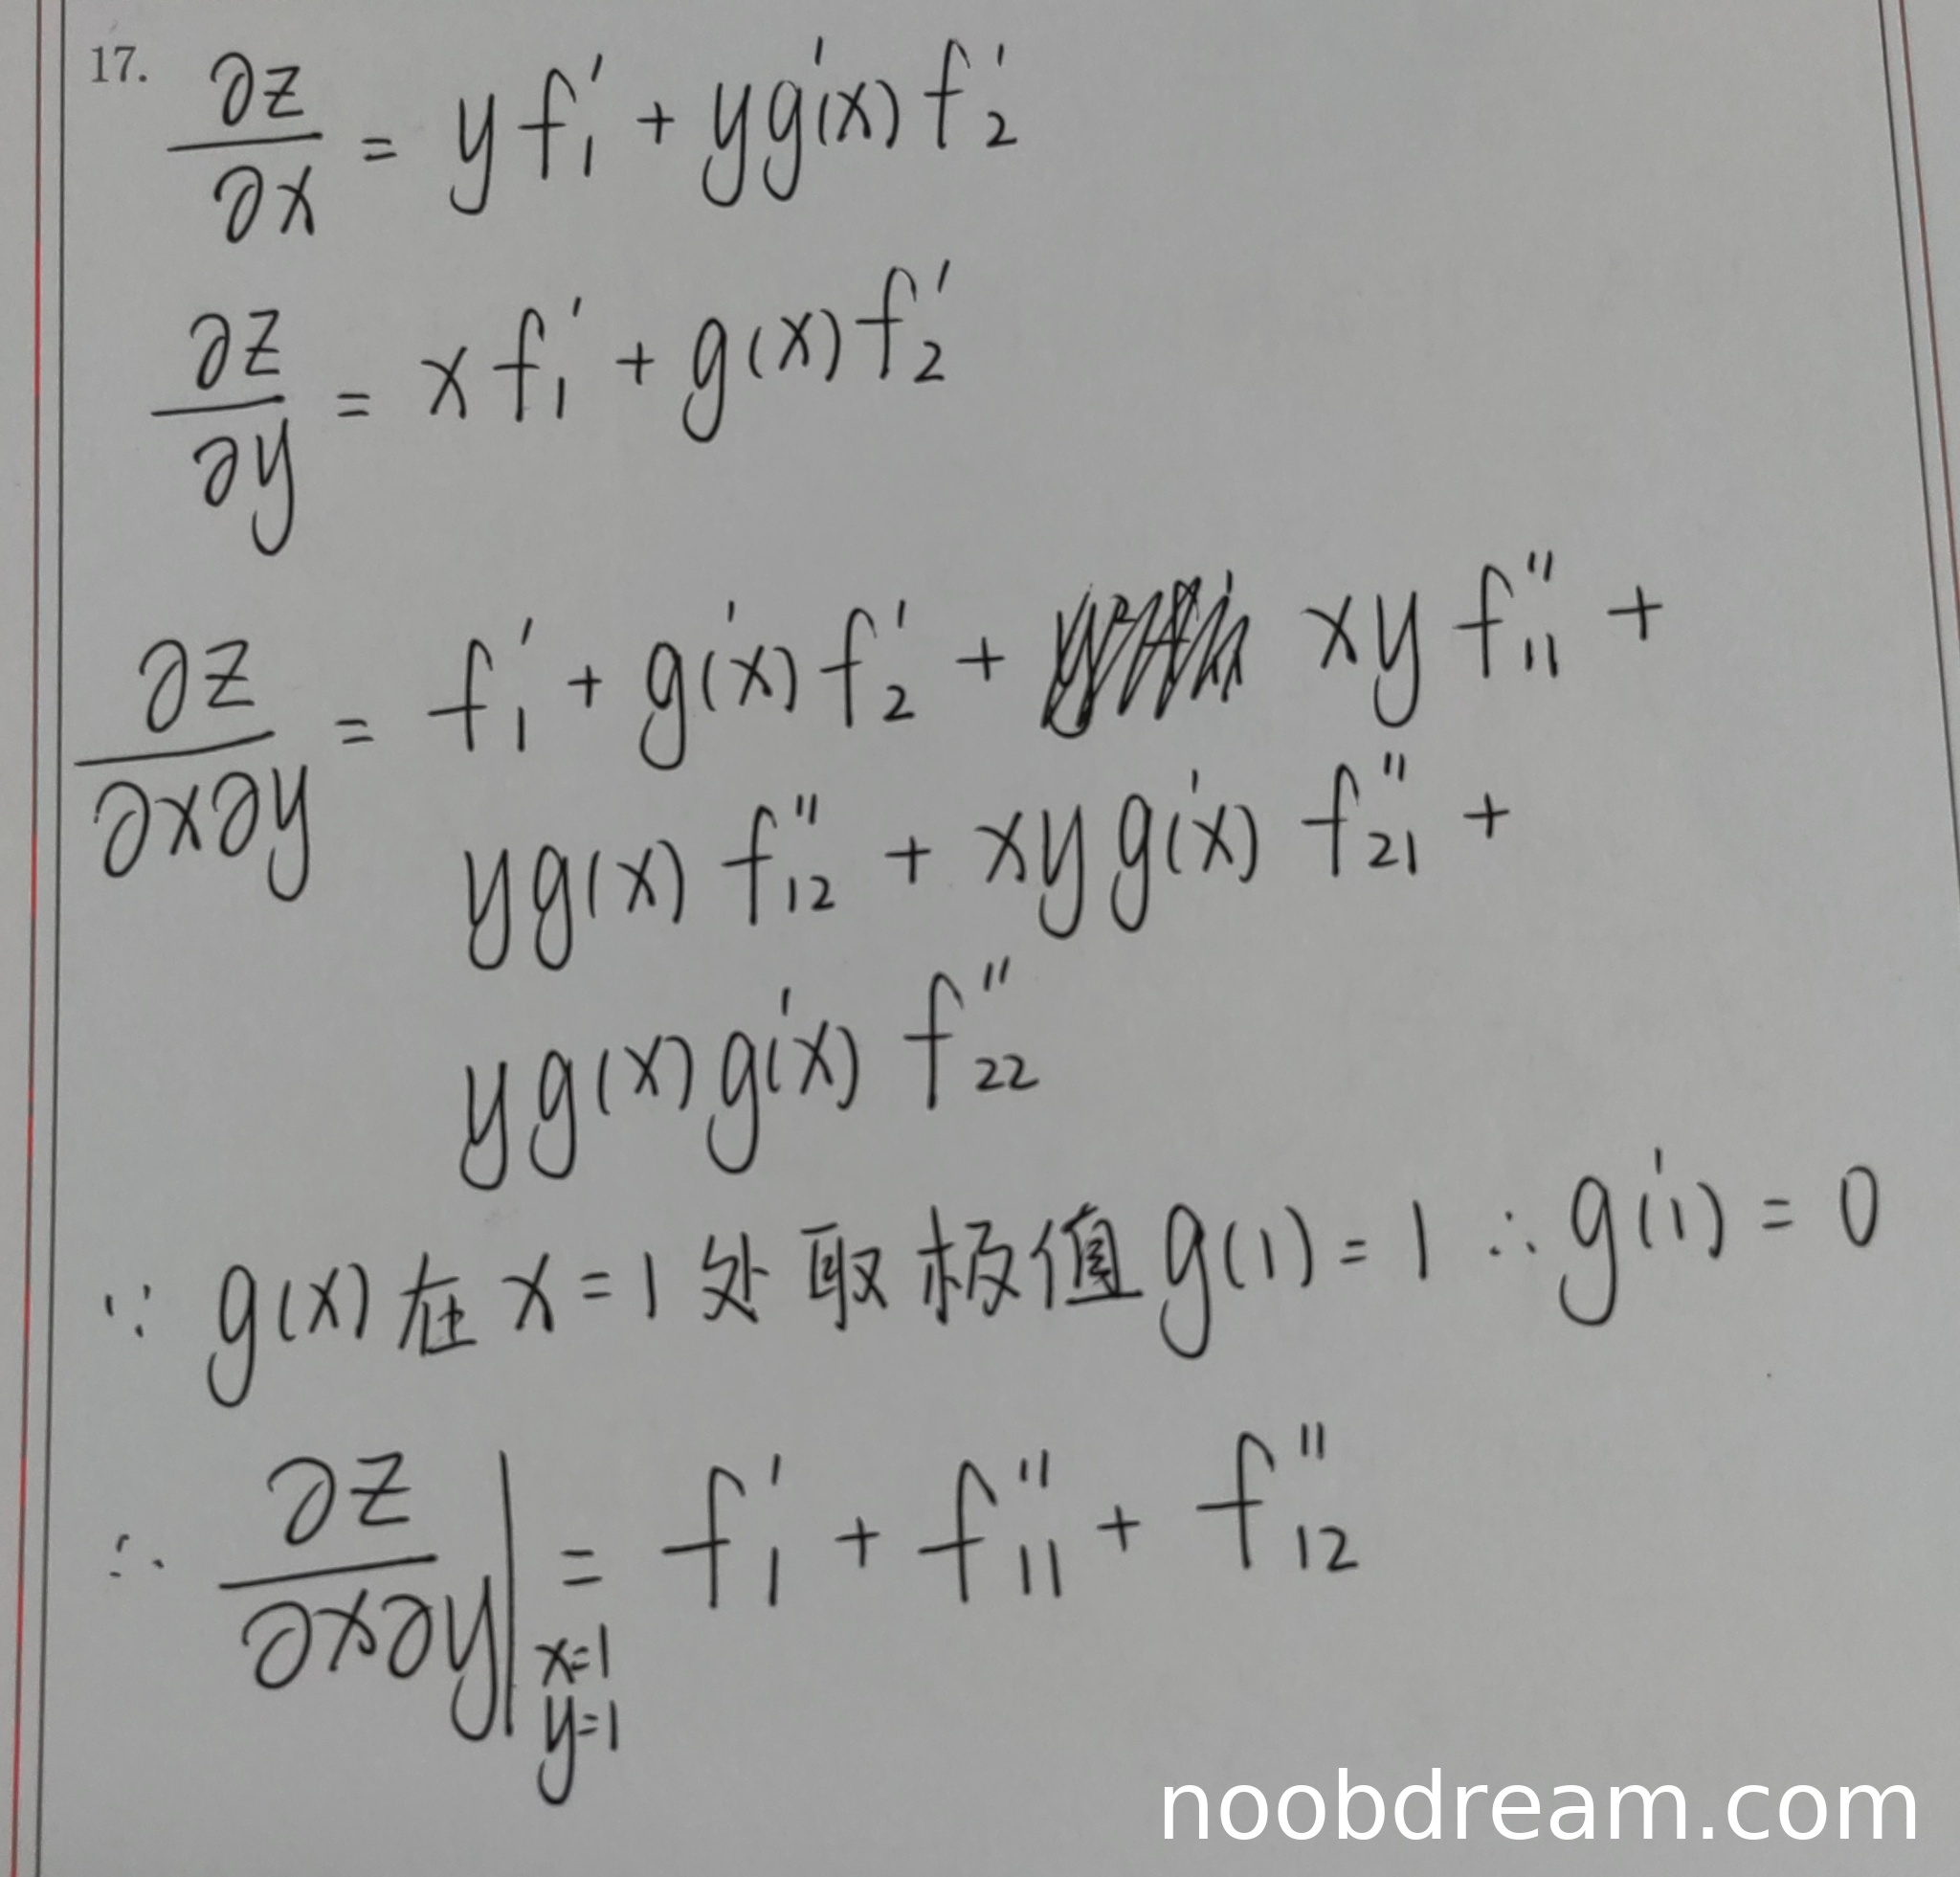 17. ∂z/∂x = yf₁' + yg'(x)f₂'
∂z/∂y = xf₁' + g(x)f₂'
∂z/∂x∂y = f₁' + g'(x)f₂' + xyf₁₁'' +
yg(x)f₁₂'' + xyg'(x)f₂₁'' +
yg(x)g'(x)f₂₂''
∵ g(x)在x=1处取极值g(1)=1 ∴g'(1)=0
∴ ∂z/∂x∂y|x=1 y=1 = f₁' + f₁₁'' + f₁₂''
noobdream.com